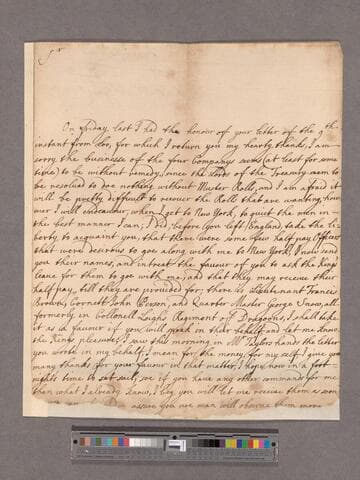 Sr
On Friday last I had the honour of your letter of the 9th
instant from Loo, for which I return you my hearty thanks, I am
sorry the businesse of the four Companys seems (at least for some
time) to be without remedy, since the Lords of the Treasury seem to
be resolved to doe nothing without Muster Rolls, and I am afraid it
will be pretty difficult to recover the Rolls that are wanting, how
ever I will endeavour, when I get to New York, to quiet the men in
the best manner I can; I did, before you left England, take the li
berty to acquaint you, that there were some few half pay Officers
that were desirous to goe along with me to New York, I now send
you their names, and intreat the favour of you to ask the King's
leave for them to goe with me, and that they may receive their
half pay, till they are provided for; there is Lieutenant Francis
Brown, Cornett John Boson, and Quarter Master George Snow, all
formerly in Collonell Leighs Regiment of Dragoons, I shall take
it as a favour if you will speak in their behalf, and let me know
the Kings pleasure; I saw this morning in Mr Taylors hands the letter
you wrote in my behalf, I mean for the money, for my self I give you
many thanks for your favour in that matter, I hope now in a fort
nights time to set sail, soe if you have any other commands for me
then what I already know, I beg you will let me receive them as soon
assure you noe man will observe them more